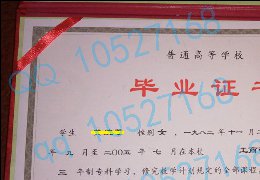 普通高等学校
毕业证书
学生 性别 女，一九八二年十一月二
年 九 月至 二〇〇五 年 七 月在本校 工商
三 年制专科学习，修完教学计划规定的全部课程，
QQ 10527168
QQ 10527168
QQ 10527168